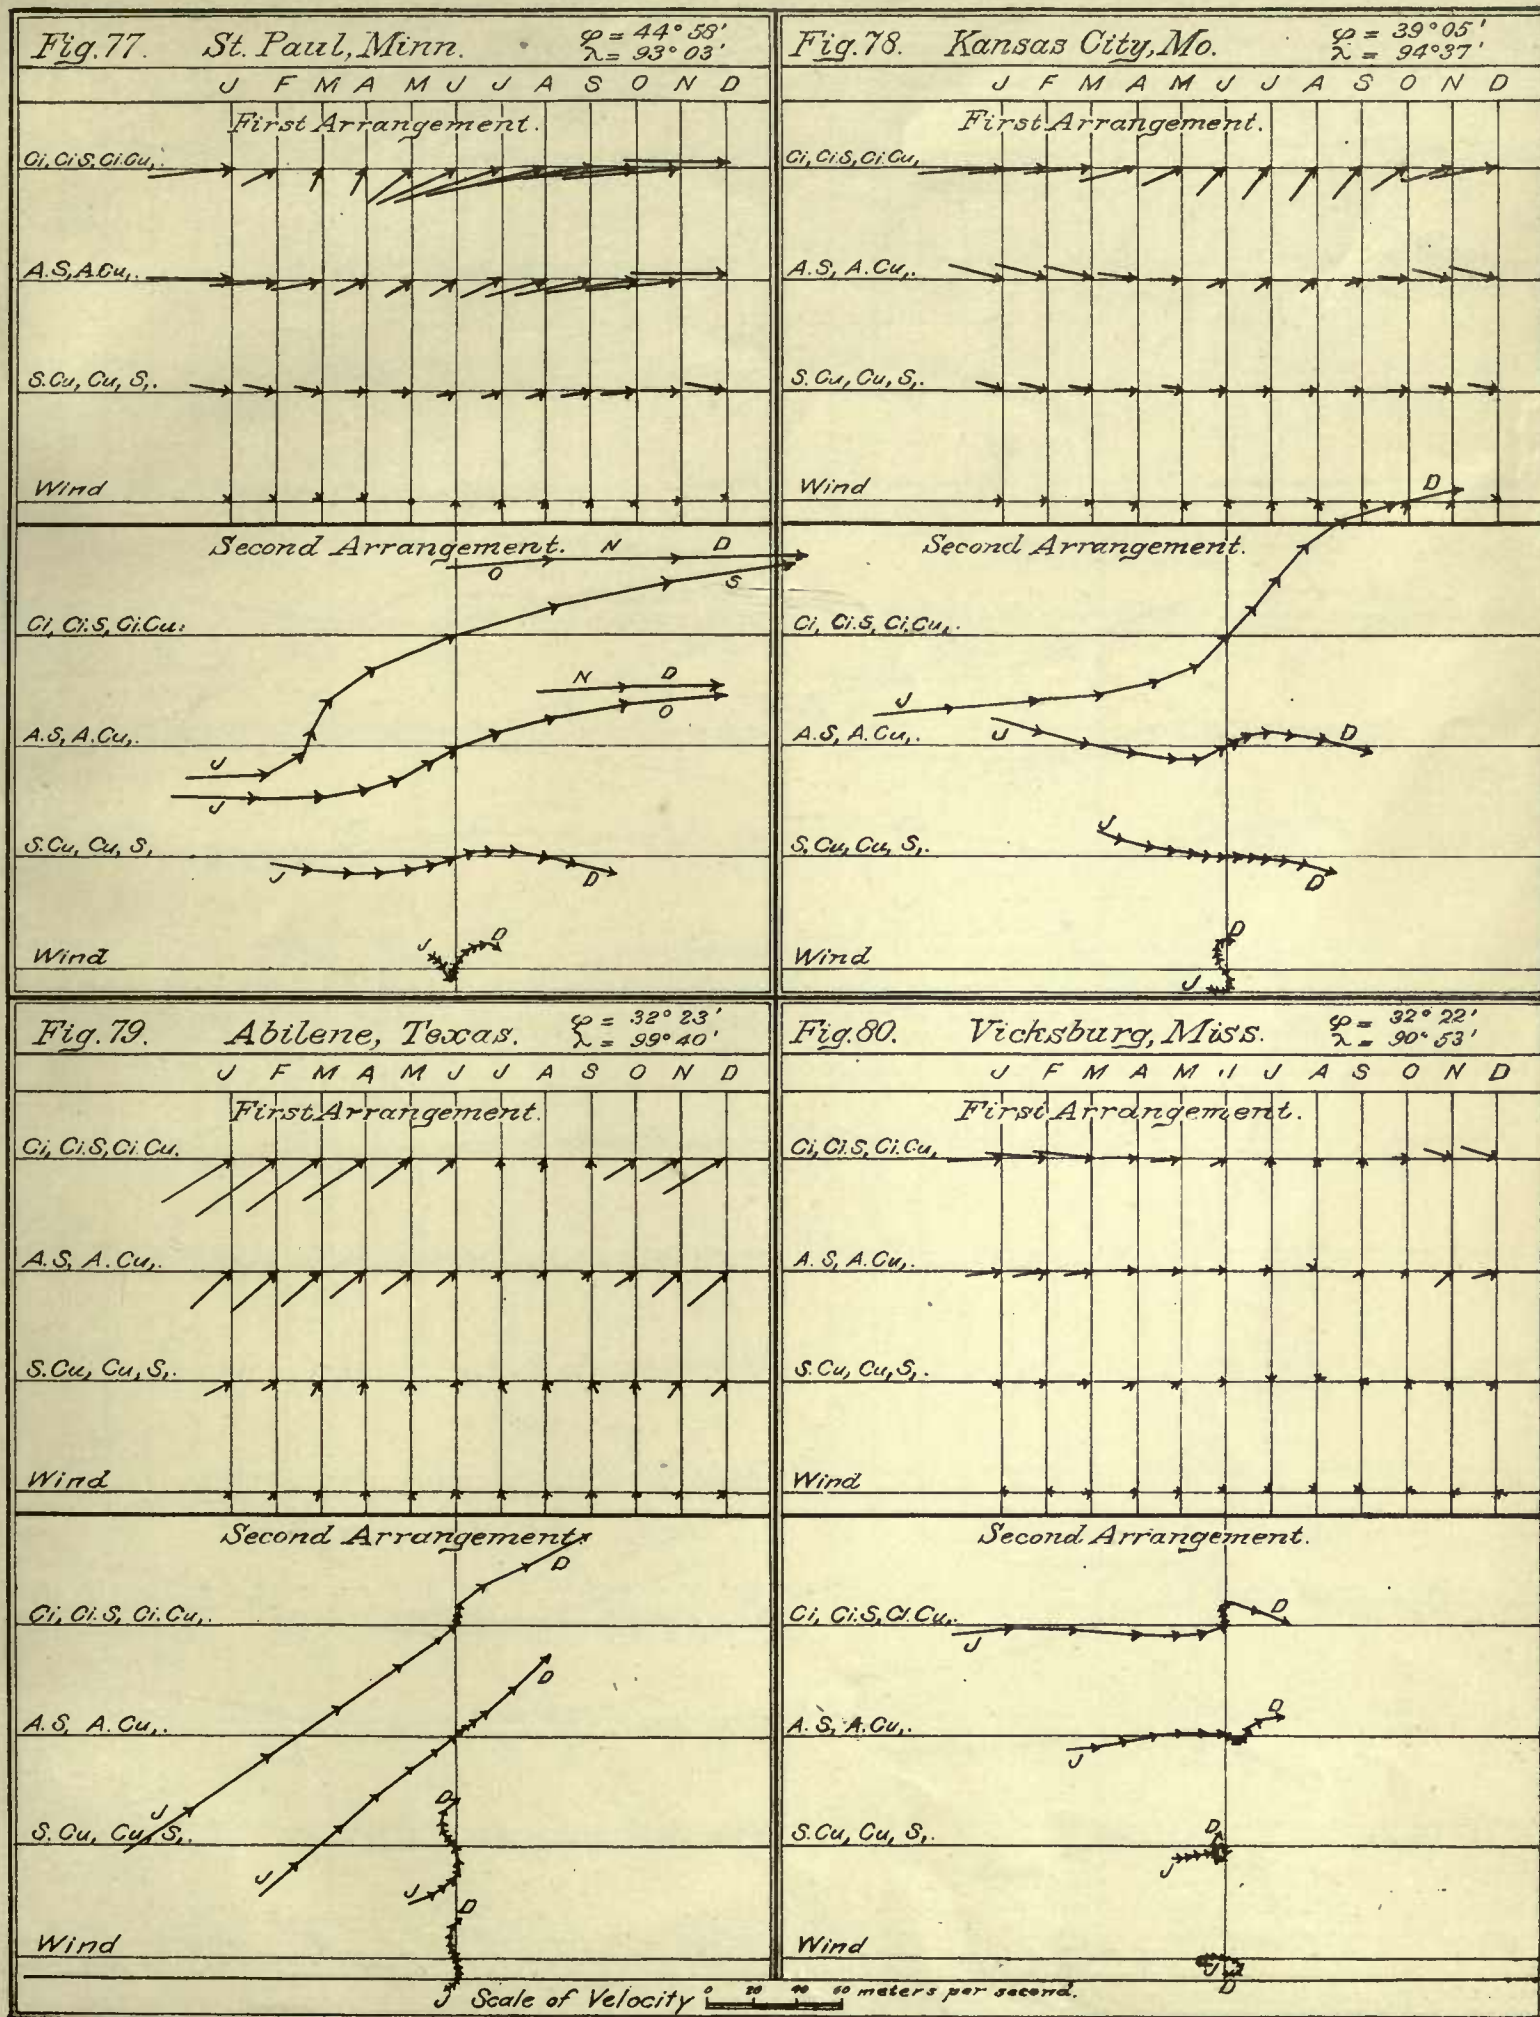 Fig. 77. St. Paul, Minn. φ = 44° 58'
λ = 93° 03'
J F M A M J J A S O N D
First Arrangement.
Ci, Ci.S, Ci.Cu,.
A.S, A.Cu,.
S.Cu, Cu, S,.
Wind
Second Arrangement. N D
O S
Ci, Ci.S, Ci.Cu.
N D
O
A.S, A.Cu,.
J
J
S.Cu, Cu, S,
J D
J D
Wind
Fig. 78. Kansas City, Mo. φ = 39° 05'
λ = 94° 37'
J F M A M J J A S O N D
First Arrangement.
Ci, Ci.S, Ci.Cu,
A.S, A.Cu,.
S.Cu, Cu, S,.
Wind D
Second Arrangement.
Ci, Ci.S, Ci.Cu,.
J
A.S, A.Cu,. J D
J
S.Cu, Cu, S,.
D
D
Wind
J
Fig. 79. Abilene, Texas. φ = 32° 23'
λ = 99° 40'
J F M A M J J A S O N D
First Arrangement.
Ci, Ci.S, Ci.Cu.
A.S, A.Cu,.
S.Cu, Cu, S,.
Wind
Second Arrangement.
D
Ci, Ci.S, Ci.Cu,.
D
A.S, A.Cu,.
J D
S.Cu, Cu, S,.
J J
D
Wind
J
Fig. 80. Vicksburg, Miss. φ = 32° 22'
λ = 90° 53'
J F M A M J J A S O N D
First Arrangement.
Ci, Ci.S, Ci.Cu,
A.S, A.Cu,.
S.Cu, Cu, S,.
Wind
Second Arrangement.
Ci, Ci.S, Ci.Cu,. D
J
A.S, A.Cu,. D
J
S.Cu, Cu, S,. D
J
Wind
J
D
Scale of Velocity 0 20 40 60 meters per second.